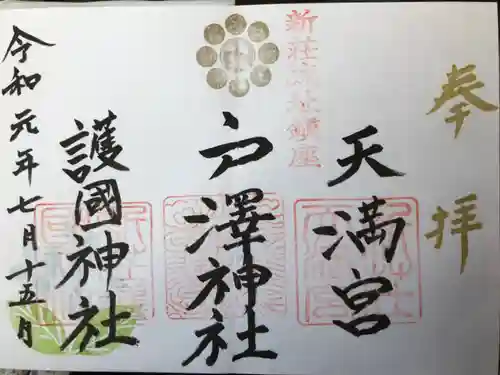 奉拝
新荘神社鎮座
天満宮
戸澤神社
護國神社
令和元年七月十五月